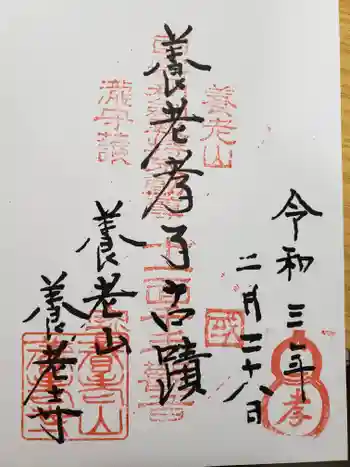 令和三年
二月二十八日
養老孝子古蹟
養老山
養老寺
養老山
瀧守護
孝